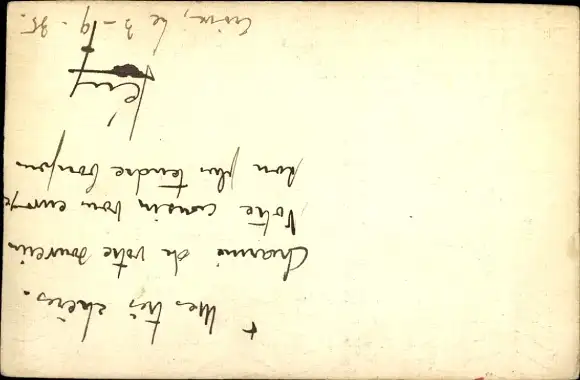 +
Mes très chères.
Charmé de votre souvenir
Votre cousin vous envoye
son plus tendre bonjour
le 3-9-35.